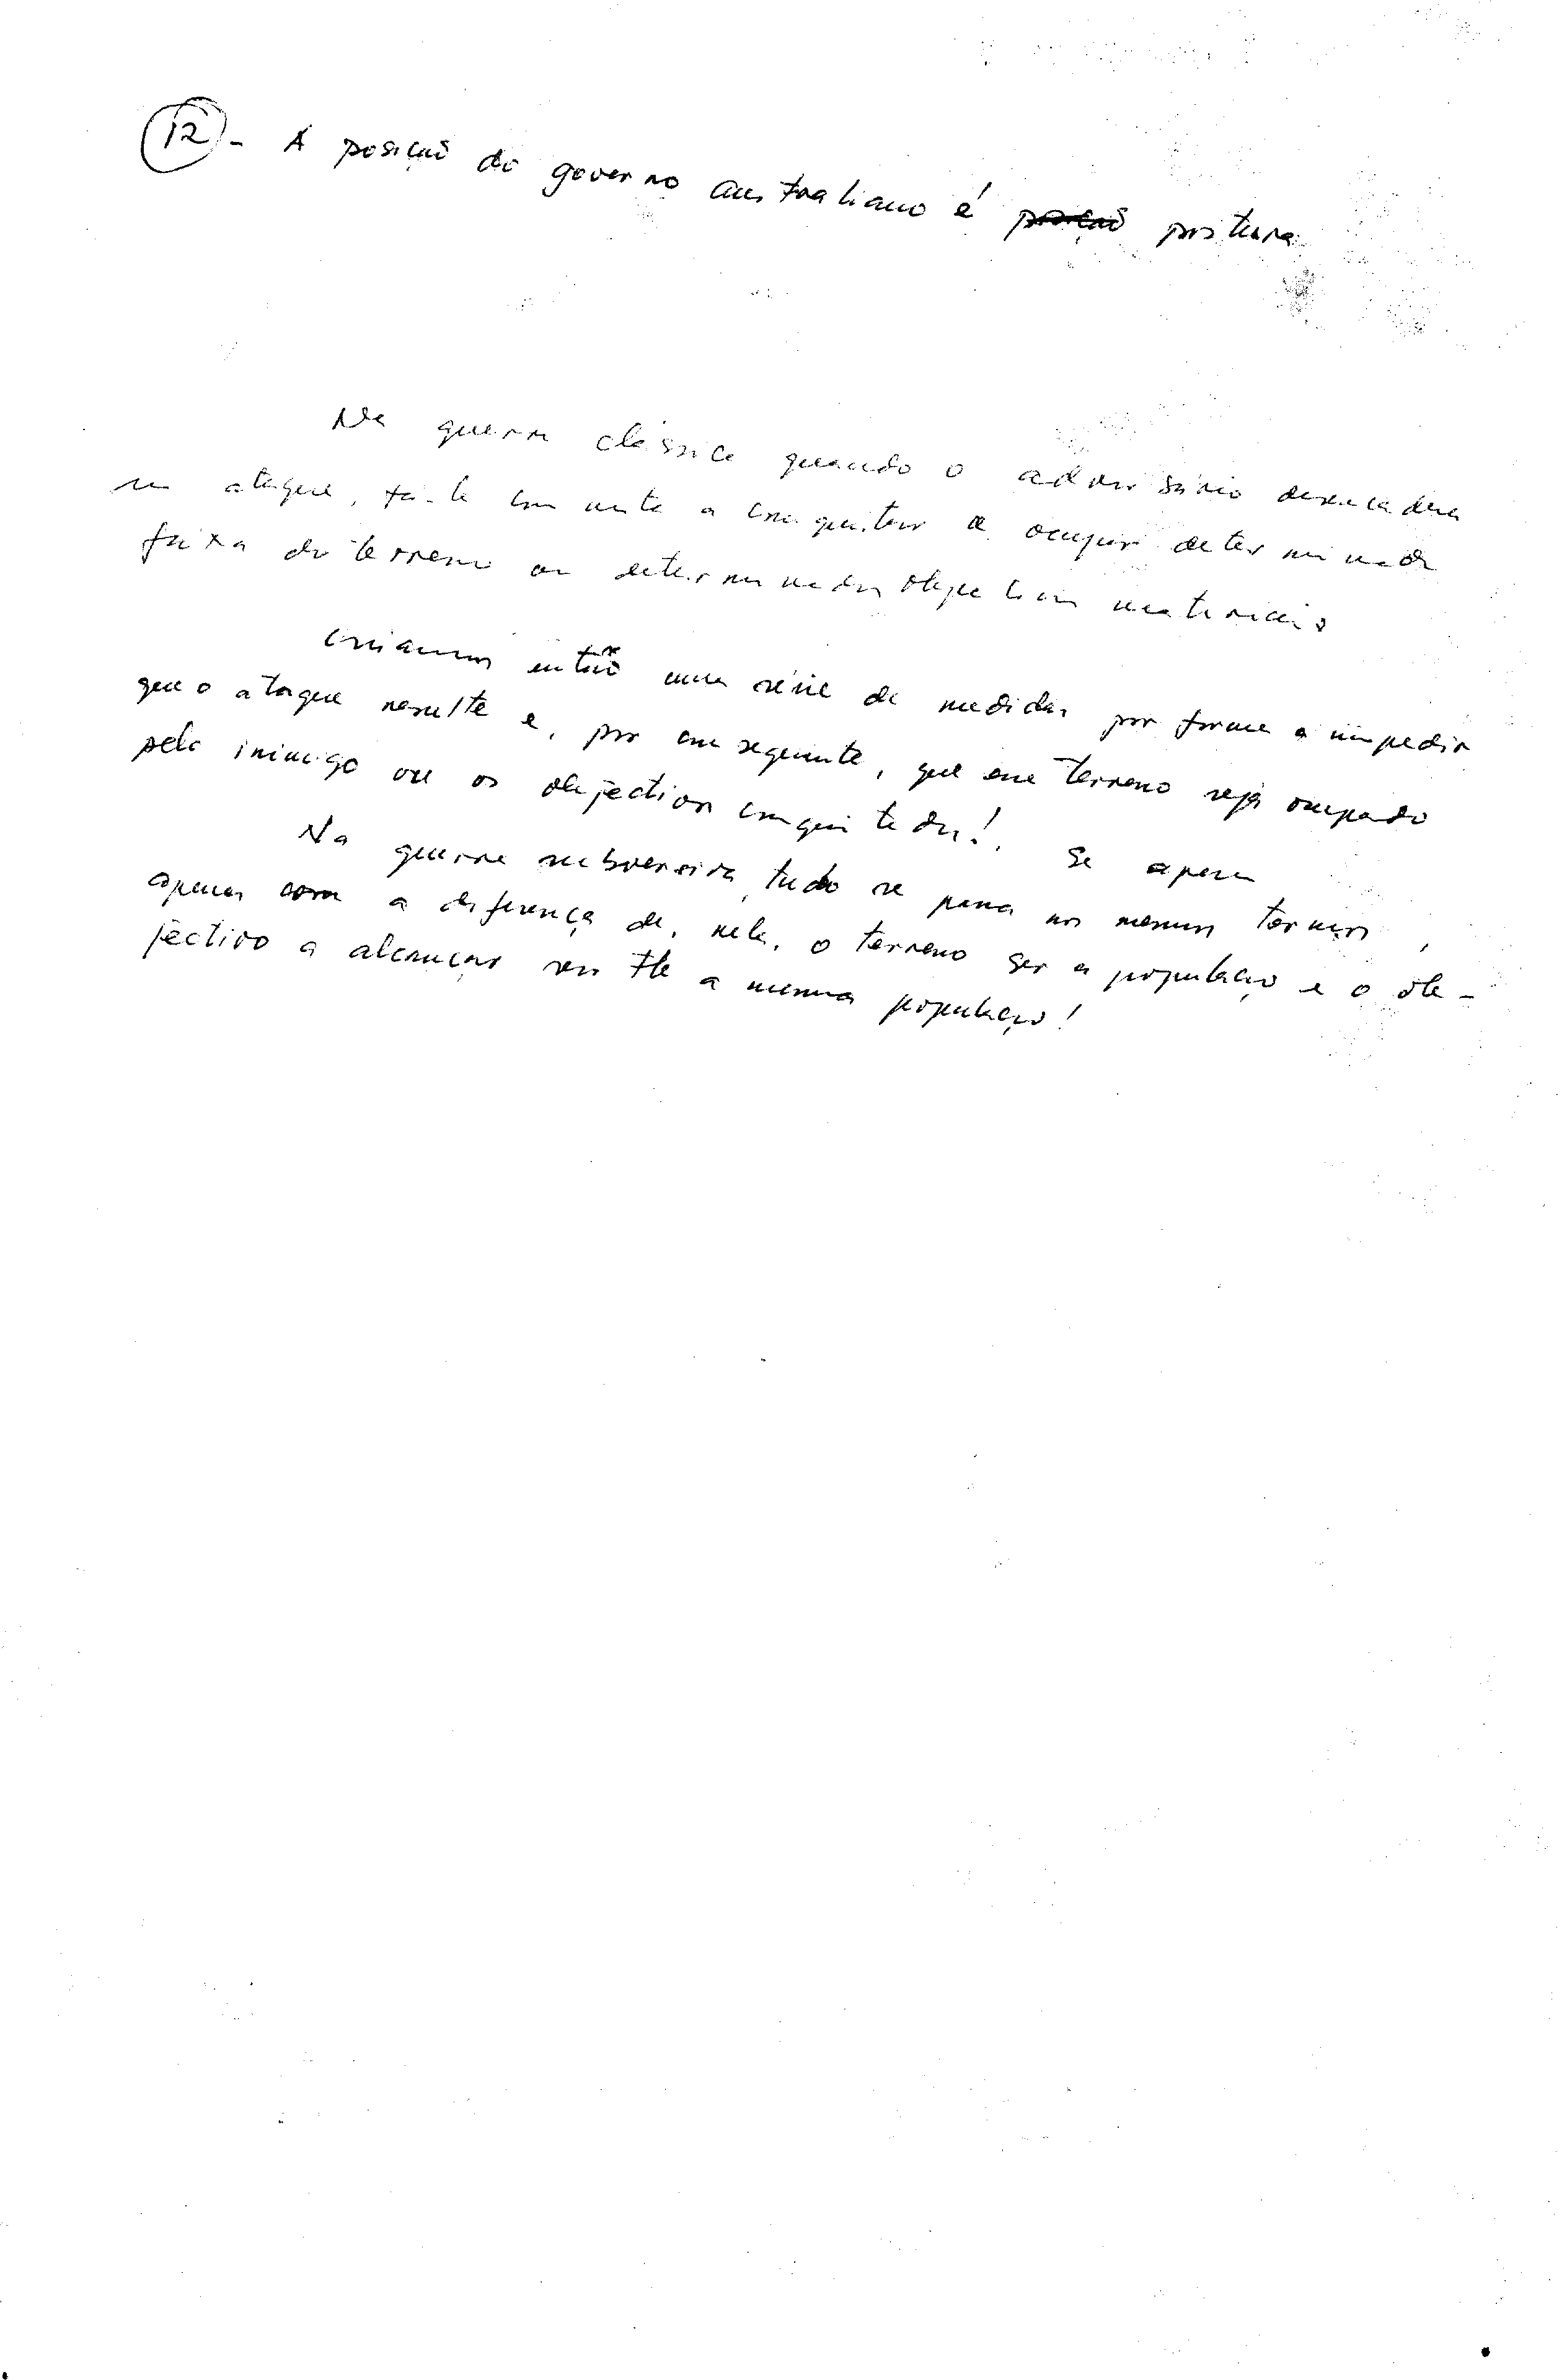 12 - A posição do governo australiano é posição postura
Na guerra clássica quando o adversário desencadeia
um ataque, fá-lo com vista a conquistar e ocupar determinada
faixa de terreno ou determinados objectivos materiais
Criamos então uma série de medidas por forma a impedir
que o ataque resulte e, por conseguinte, que esse terreno seja ocupado
pelo inimigo ou os objectivos conquistados!. Se apesa
Na guerra subversiva tudo se passa nos mesmos termos,
apenas com a diferença de, nela, o terreno ser a população e o ob-
jectivo a alcançar a mesma população!